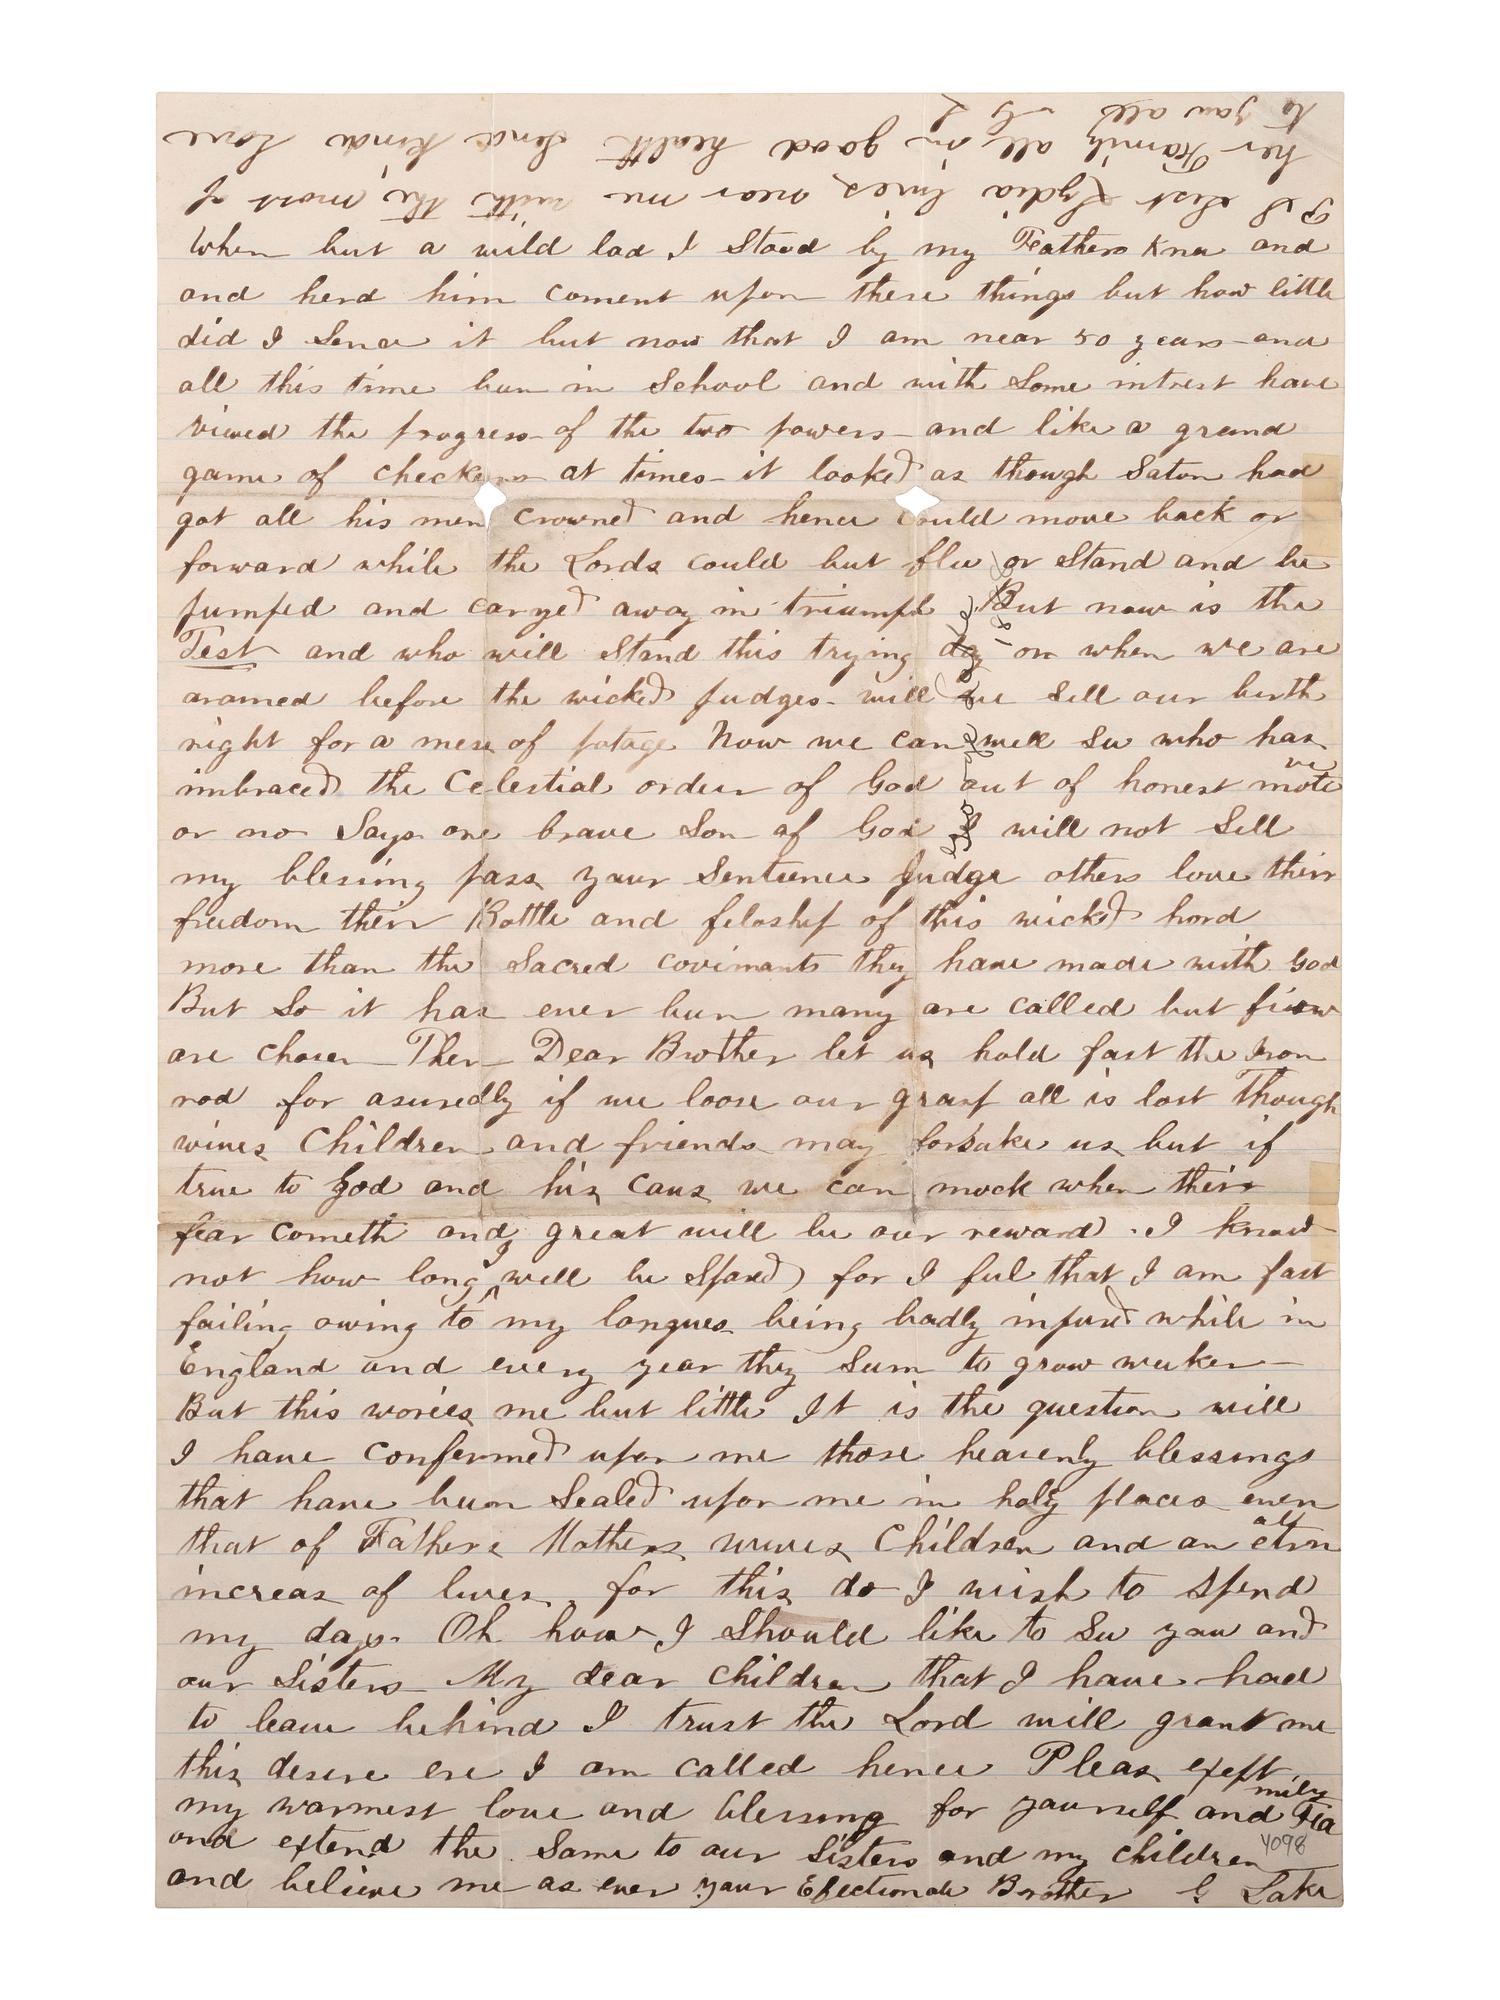 When but a wild lad I Stood by my Fathers Knee and
and herd him coment upon these things but how little
did I Sence it but now that I am near 50 years and
all this time bun in School and with Some intrest have
viewed the progress of the two powers and like a grand
game of checkers at times it looked as though Saton had
got all his men crowned and hence could move back or
forward while the Lords could but flee or Stand and be
jumped and caryed away in triumph But now is the
Test and who will Stand this trying day or when we are
aramed before the wicked judges will we Sell our birth
right for a mess of potage Now we can well See who has
imbraced the Celestial order of God out of honest motive
or no Says one brave Son of God I will not Sell
my blesing pass your Sentence Judge others love thir
freedom thir Bottle and feloship of this wicked hord
more than the Sacred covinants they have made with God
But So it has ever bun many are called but fiew
are chosen Then Dear Brother let us hold fast the Iron
rod for asuredly if we loose our grasp all is lost Though
wives Children and friends may forsake us but if
true to god and his caus we can mock when thir
fear cometh and great will be our reward . I know
not how long I will be Spared for I feel that I am fast
failing owing to my longues being badly injured while in
England and every year they Seem to grow weeker
But this wories me but little It is the question will
I have confermed upon me those heavenly blessings
that have been Sealed upon me in holy places even
that of Fathers Mothers wives Children and an etirnal
increas of lives for this do I wish to Spend
my days. Oh how I Should like to See you and
our Sisters My dear Children that I have had
to leave behind I trust the Lord will grant me
this desire ere I am called hence Pleas exept
my warmest love and blessing for yourself and Family
and extend the Same to our Sisters and my children
and believe me as ever your Efectionate Brother G Lake
4098
P S Sist Lydia lives near me with the most of
her Family all in good health Send kind Love
to you all G L